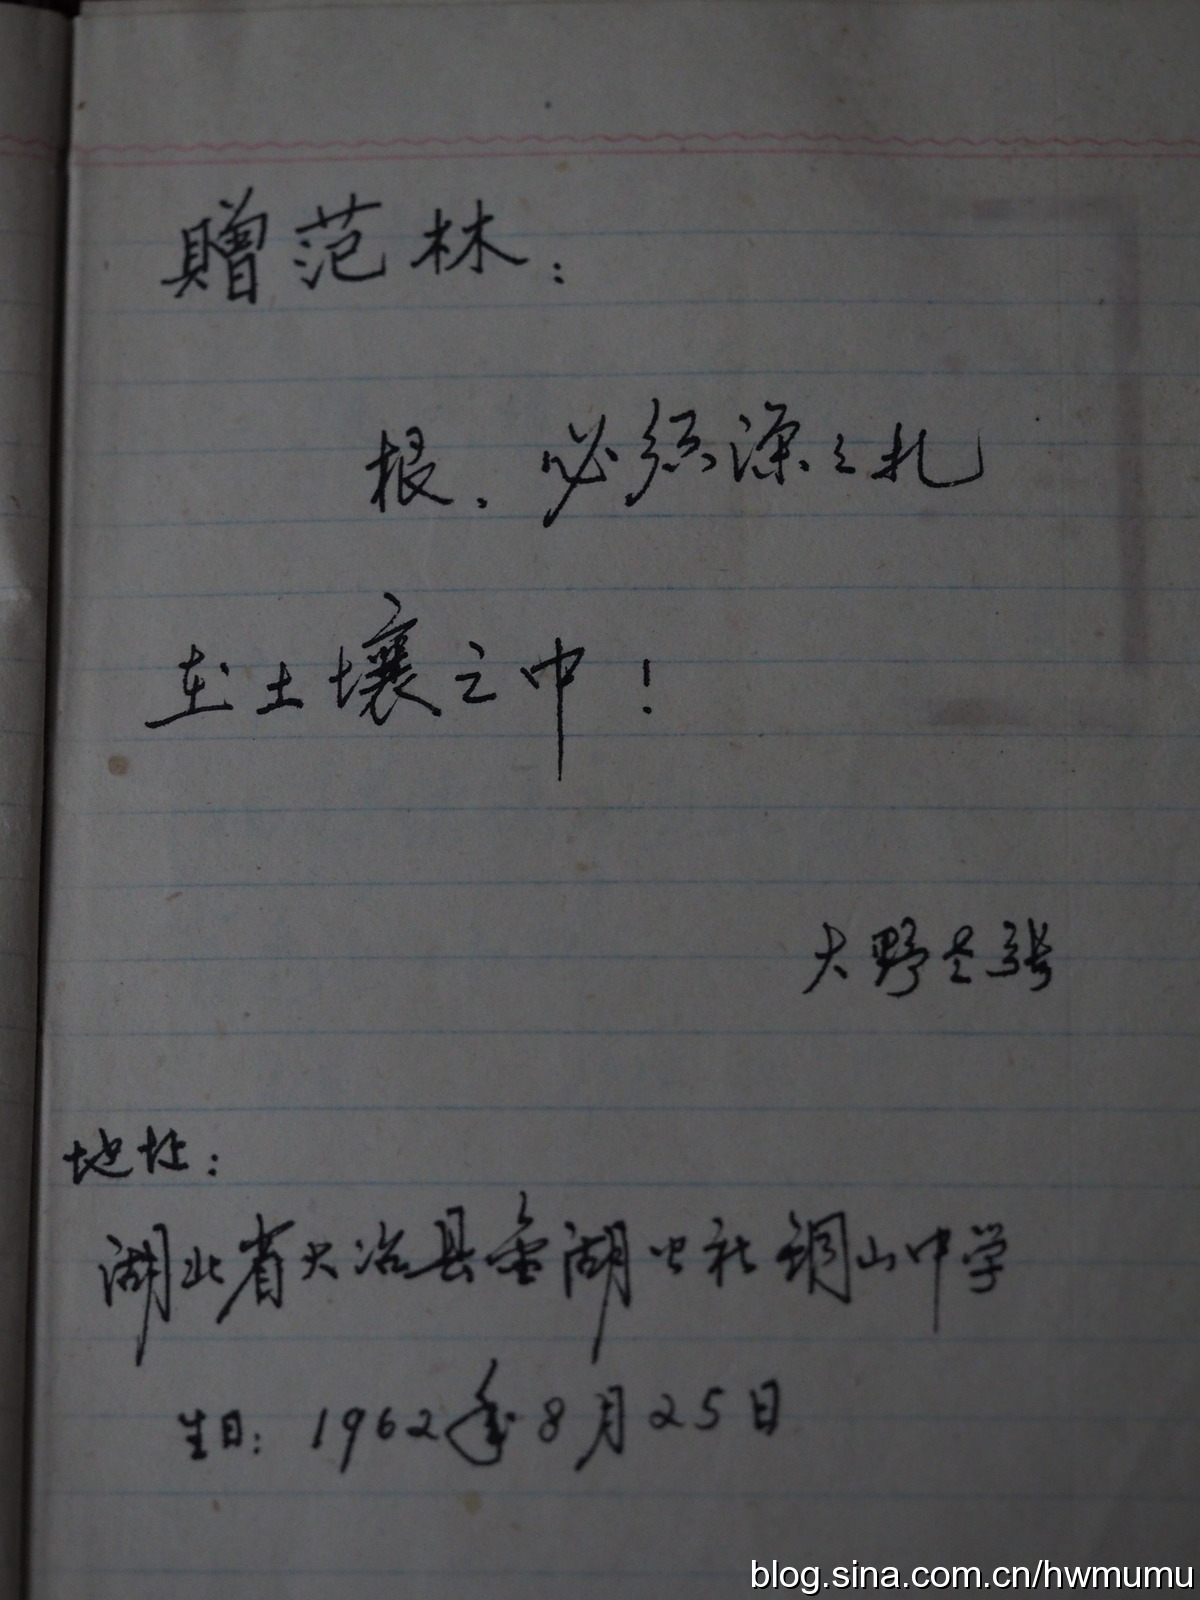 赠范林：
根，必须深深扎
在土壤之中！
大野
地址：
湖北省大冶县金湖公社铜山中学
生日：1962年8月25日
blog.sina.com.cn/hwmumu